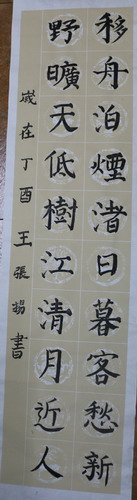 移舟泊煙渚日暮客愁新
野曠天低樹江清月近人
歲在丁酉王張揚書